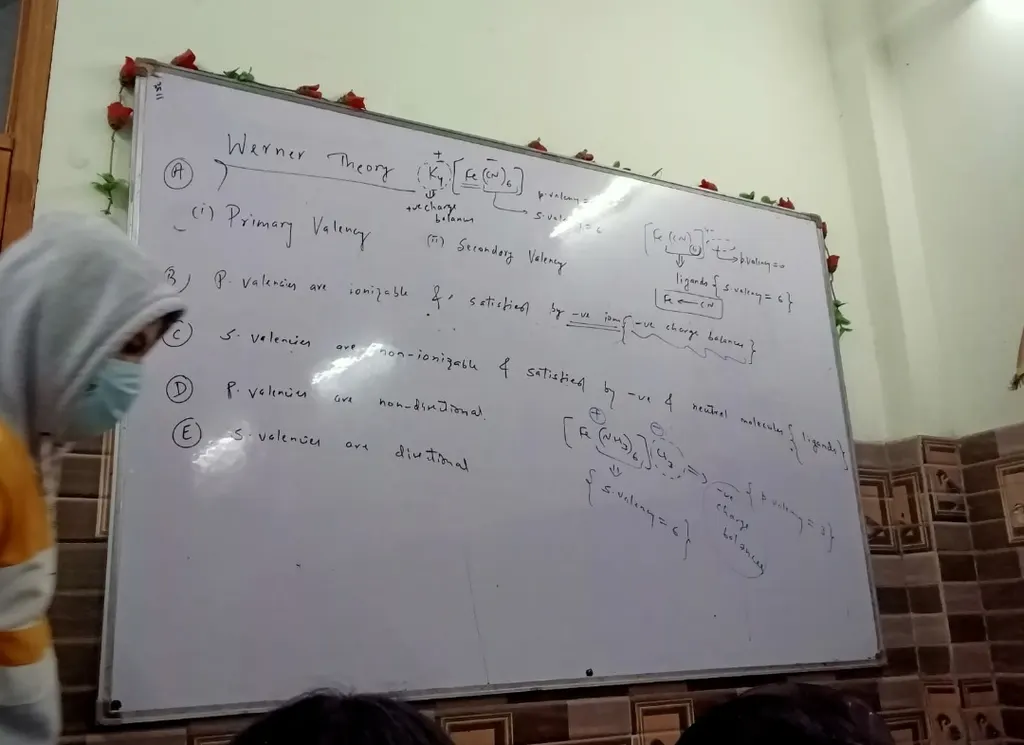 Werner Theory
+ −
(K4) [Fe(CN)6]
+ve charge
balances
p.valency =
s.valency = 6
(A)
(i) Primary Valency (ii) Secondary Valency
[Fe(CN)6]
p.valency = 0
ligands { s.valency = 6 }
Fe ← CN
B) P. valencies are ionizable & satisfied by -ve ions { -ve charge balances }
(C) S. valencies are non-ionizable & satisfied by -ve & neutral molecules { ligands }
(D) P. valencies are non-directional.
(E) S. valencies are divetional
+ −
[Fe (NH3)6] Cl3 => -ve charge balances { p.valency = 3 }
{ s.valency = 6 }